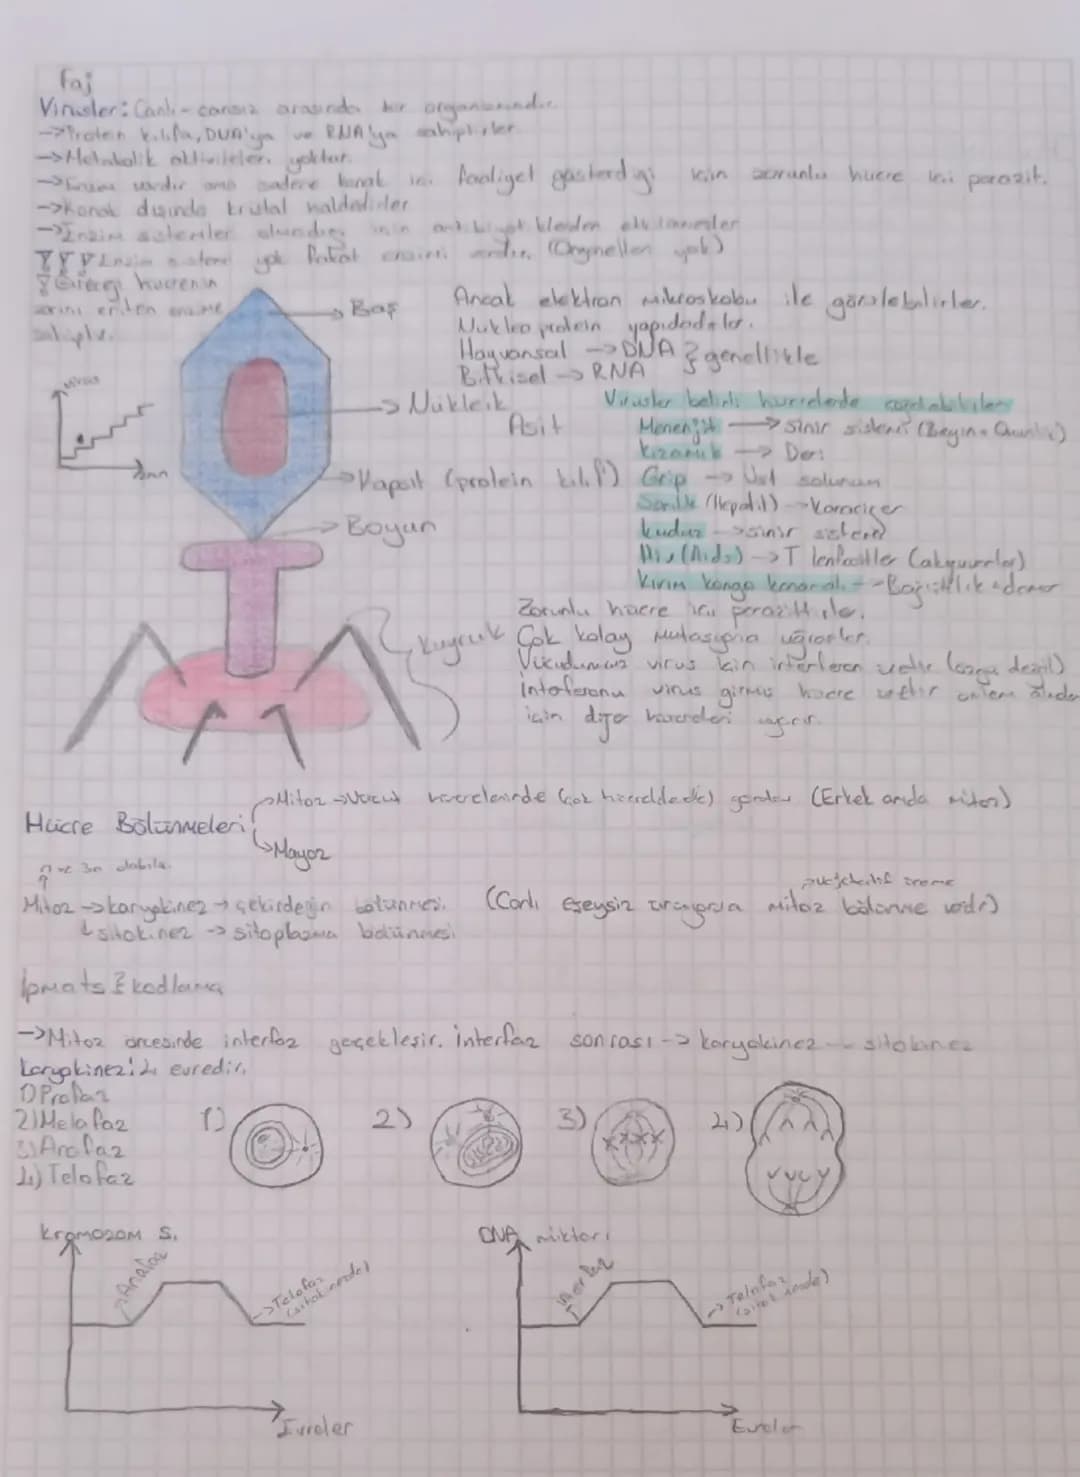 Faj
Virüsler: Canlı-cansız arasında bir organizmadır.
->Protein kılıfa, DNA'ya ve RNA'ya sahiptirler.
->Metabolik aktiviteleri yoktur.
->Enzim vardır ama sadece konak içi faaliyet gösterdiği için zorunlu hücre içi parazit.
->Konak dışında kristal haldedirler
->Enzim sistemler olmadığı için antibiyotiklerden etkilenmezler
Enzim sistemi yok fakat enzimi vardır. (Organelleri yok)
Gireceği hücrenin
zarını eriten enzime
sahiptir.
Baş
Nükleik
Asit
Kapsit (protein kılıf)
Boyun
Kuyruk
Virüs
Ancak elektron mikroskobu ile görülebilirler.
Nükleo protein yapıdadırlar.
Hayvansal -> DNA } genellikle
Bitkisel -> RNA
Virüsler belirli hücrelerde
Menenjit -> sinir sistemi (Beyin
Kızamık -> Deri
Grip -> Üst solunum
Sarılık (Hepatit) -> Karaciğer
Kuduz -> sinir sistemi
(Aids) -> T lenfositler (akyuvarlar)
Kırım kongo kanamalı -> Bağışıklık + damar
Zorunlu hücre içi parazittirler.
Çok kolay mutasyona uğrarlar.
Vücudumuz virüs için interferon üretir
virüs girmiş hücre üretir önlem
için diğer hücreleri uyarır.
Hücre Bölünmeleri
->Mitoz -> Vücut hücrelerinde (çok hücrelilerde) görülür (Erkek arıda mitoz)
->Mayoz
3n olabilir.
Mitoz -> karyokinez -> çekirdeğin bölünmesi. (Canlı eşeysiz ürüyorsa mitoz bölünme vardır)
vejetatif üreme
sitokinez -> sitoplazma bölünmesi
ipmats kodlama
->Mitoz öncesinde interfaz geçekleşir. interfaz sonrası -> karyokinez -- sitokinez
Karyokinez: 4 evredir.
1) Profaz
2) Metafaz
3) Anafaz
4) Telofaz
1)
2)
3)
4)
Kromozom S.
Anafaz
->Telofaz
Evreler
DNA miktarı
interfaz
->Telofaz
Evreler